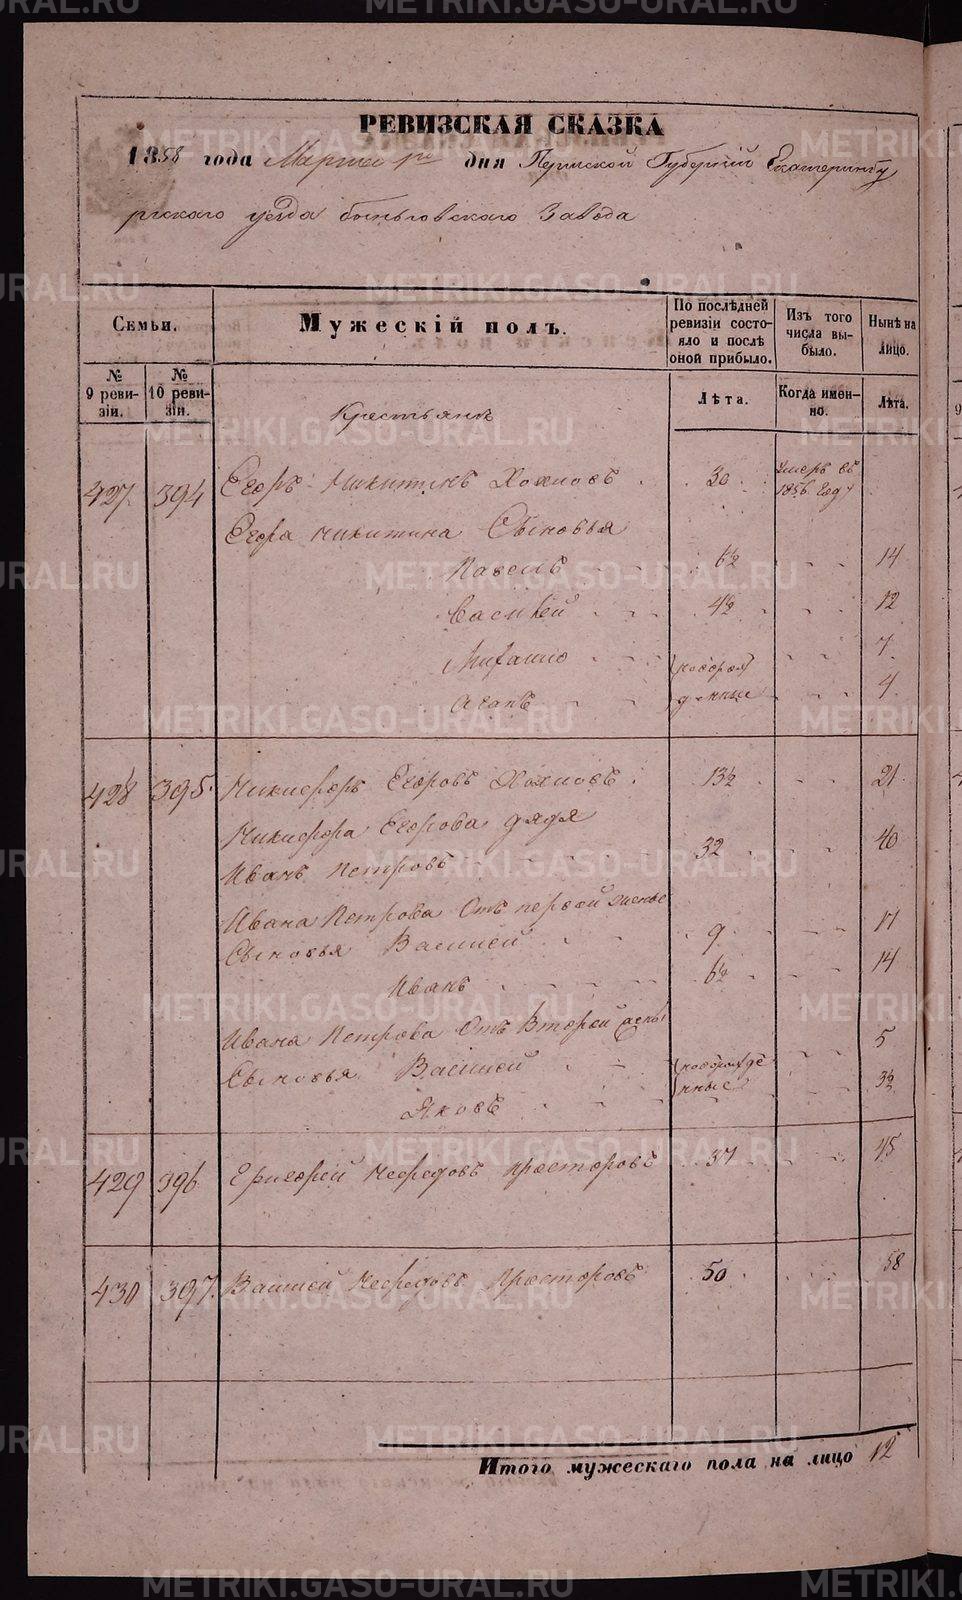 РЕВИЗСКАЯ СКАЗКА
1858 года Марта 1го дня Пермской Губернiи Екатеринбу
ргскаго уезда быньговскаго Завода
Семьи.
Мужескiй полъ.
По послѣдней ревизiи состояло и послѣ оной прибыло.
Изъ того числа выбыло.
Нынѣ на лицо.
№ 9 ревизiи.
№ 10 ревизiи.
Лѣта.
Когда именно.
Лѣта.
Крестьянъ
427 394 Егоръ Никитинъ Хохловъ 30 Умеръ въ 1856 Году
Егора Никитина Сыновья
Павелъ 6½ 14
Василей 4½ 12
Михаило 7
Агапъ 4
428 395 Никифоръ Егоровъ Хохловъ 13½ 21
Никифора Егорова дядя
Иванъ Петровъ 32 40
Ивана Петрова Отъ первой жены
Сыновья Василей 9 17
Иванъ 6½ 14
Ивана Петрова Отъ Второй жены
Сыновья Василей 5
Яковъ 3½
429 396 Григорей Нефедовъ 37 45
430 397 Василей Нефедовъ 50 58
Итого мужескаго пола на лицо 12
METRIKI.GASO-URAL.RU